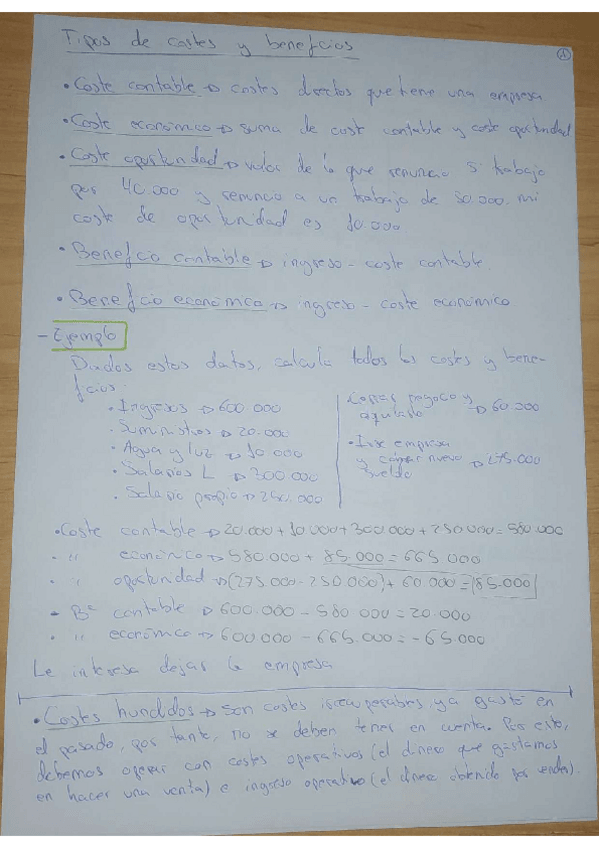 Tipos de costes y beneficios
1
• Coste contable → costes directos que tiene una empresa
• Coste económico → suma de cost contable y coste oportunidad
• Coste oportunidad → valor de lo que renuncio si trabajo
por 40.000 y renuncio a un trabajo de 50.000. mi
coste de oportunidad es 10.000
• Beneficio contable → ingreso - coste contable
• Beneficio económico → ingreso - coste económico
- Ejemplo
Dados estos datos, calcula todos los costes y bene-
ficios:
• Ingresos → 600.000
• Suministros → 20.000
• Agua y luz → 10.000
• Salarios L → 300.000
• Salario propio → 250.000
negocio y
alquilarlo → 60.000
• Irse empresa
y nuevo → 275.000
sueldo
• Coste contable → 20.000 + 10.000 + 300.000 + 250.000 = 580.000
• " económico → 580.000 + 85.000 = 665.000
• " oportunidad → (275.000 - 250.000) + 60.000 = 85.000
- Bº contable → 600.000 - 580.000 = 20.000
- " económico → 600.000 - 665.000 = -65.000
Le interesa dejar la empresa
• Costes hundidos → Son costes irrecuperables, ya gasté en
el pasado, por tanto, no se deben tener en cuenta. Por esto,
debemos operar con costes operativos (el dinero que gastamos
en hacer una venta) e ingreso operativo (el dinero obtenido por vender).